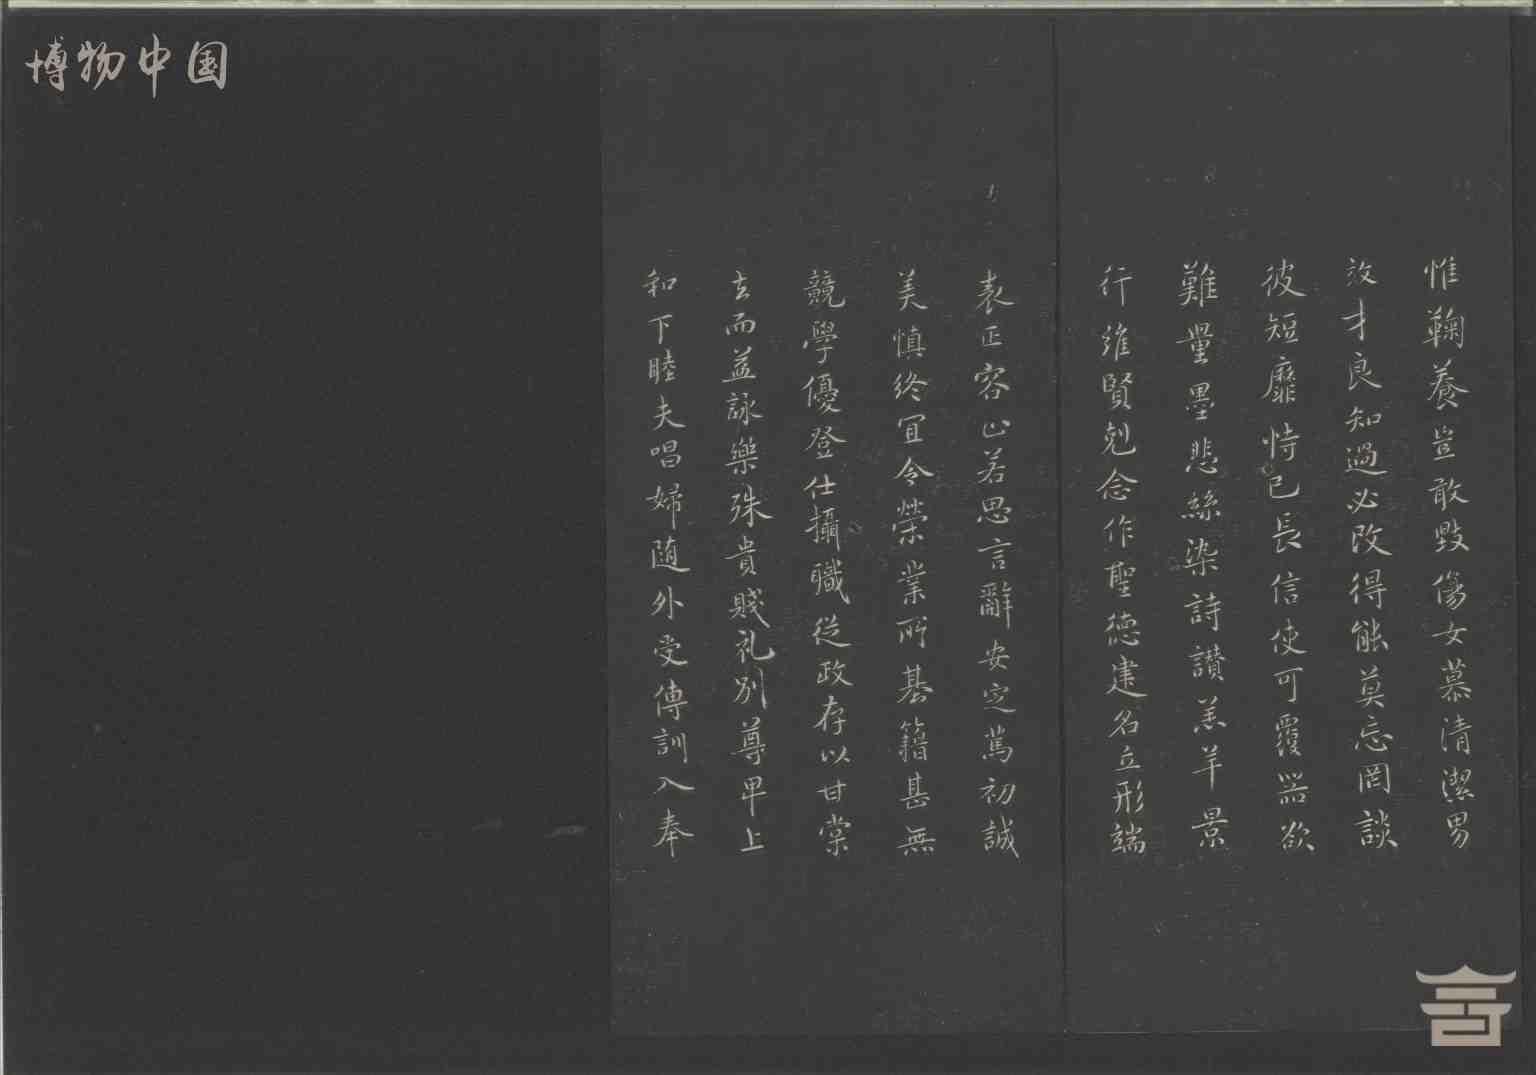 博物中国
惟鞠養豈敢毀傷女慕清潔男
效才良知過必改得能莫忘罔談
彼短靡恃己長信使可覆器欲
難量墨悲絲染詩讃羔羊景
行維賢剋念作聖德建名立形端
表正容止若思言辭安定篤初誠
美慎終宜令榮業所基籍甚無
競學優登仕攝職從政存以甘棠
去而益詠樂殊貴賤礼別尊卑上
和下睦夫唱婦随外受傅訓入奉